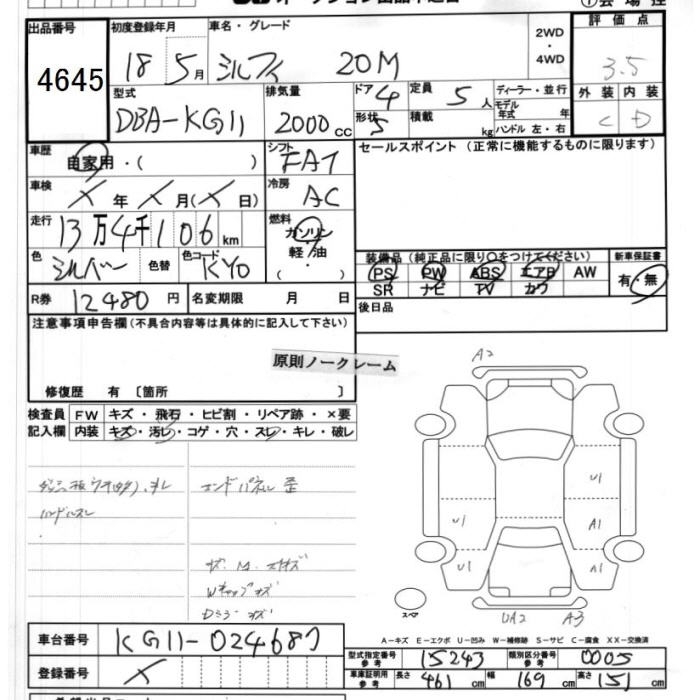 出品番号 初度登録年月 車名・グレード 2WD ・ 4WD 評価点
4645 18 5月 シルフィ 20M 3.5
型式 排気量 ドア 4 定員 5人 ディーラー・並行 外装 内装
DBA-KG11 2000cc 形状 5 積載 kg モデル年式 年 ハンドル 左・右 C D
車歴 自家用・( ) シフト FAT セールスポイント(正常に機能するものに限ります)
車検 X年 X月(X日) 冷房 AC
走行 13万4千106km 燃料 ガソリン 軽油 ( ・ )
色 シルバー 色替 色コード KY0
装備品(純正品に限り○をつけてください) 新車保証書
PS PW ABS エアB AW 有・無
SR ナビ TV カワ
R券 12480円 名変期限 月 日 後日品
注意事項申告欄(不具合内容等は具体的に記入して下さい)
原則ノークレーム
修復歴 有〔箇所 〕
検査員 FW キズ・飛石・ヒビ割・リペア跡・×要
記入欄 内装 キズ・汚レ・コゲ・穴・スレ・キレ・破レ
エンドパネル 歪
ハンドルスレ
A2
U1
U1 A1
U1 A1
スペア UA2 A3
A-キズ E-エクボ U-凹み W-補修跡 S-サビ C-腐食 XX-交換済
車台番号 KG11-024687
型式指定番号 参考 15243 類別区分番号 参考 0005
登録番号 X
車庫証明用 参考 長さ 461cm 幅 169cm 高さ 151cm